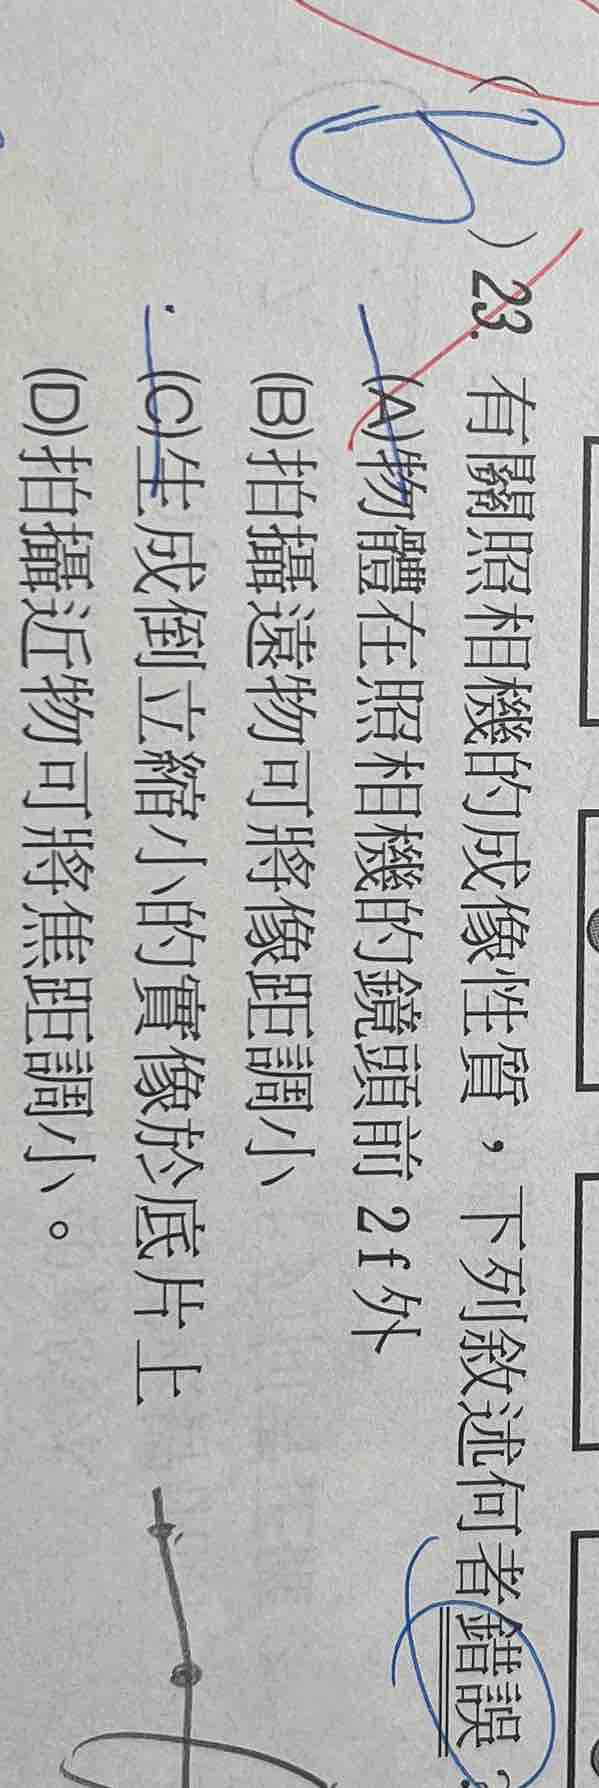 (B) 23. 有關照相機的成像性質，下列敘述何者錯誤？
(A)物體在照相機的鏡頭前 2f 外
(B)拍攝遠物可將像距調小
(C)生成倒立縮小的實像於底片上
(D)拍攝近物可將焦距調小。